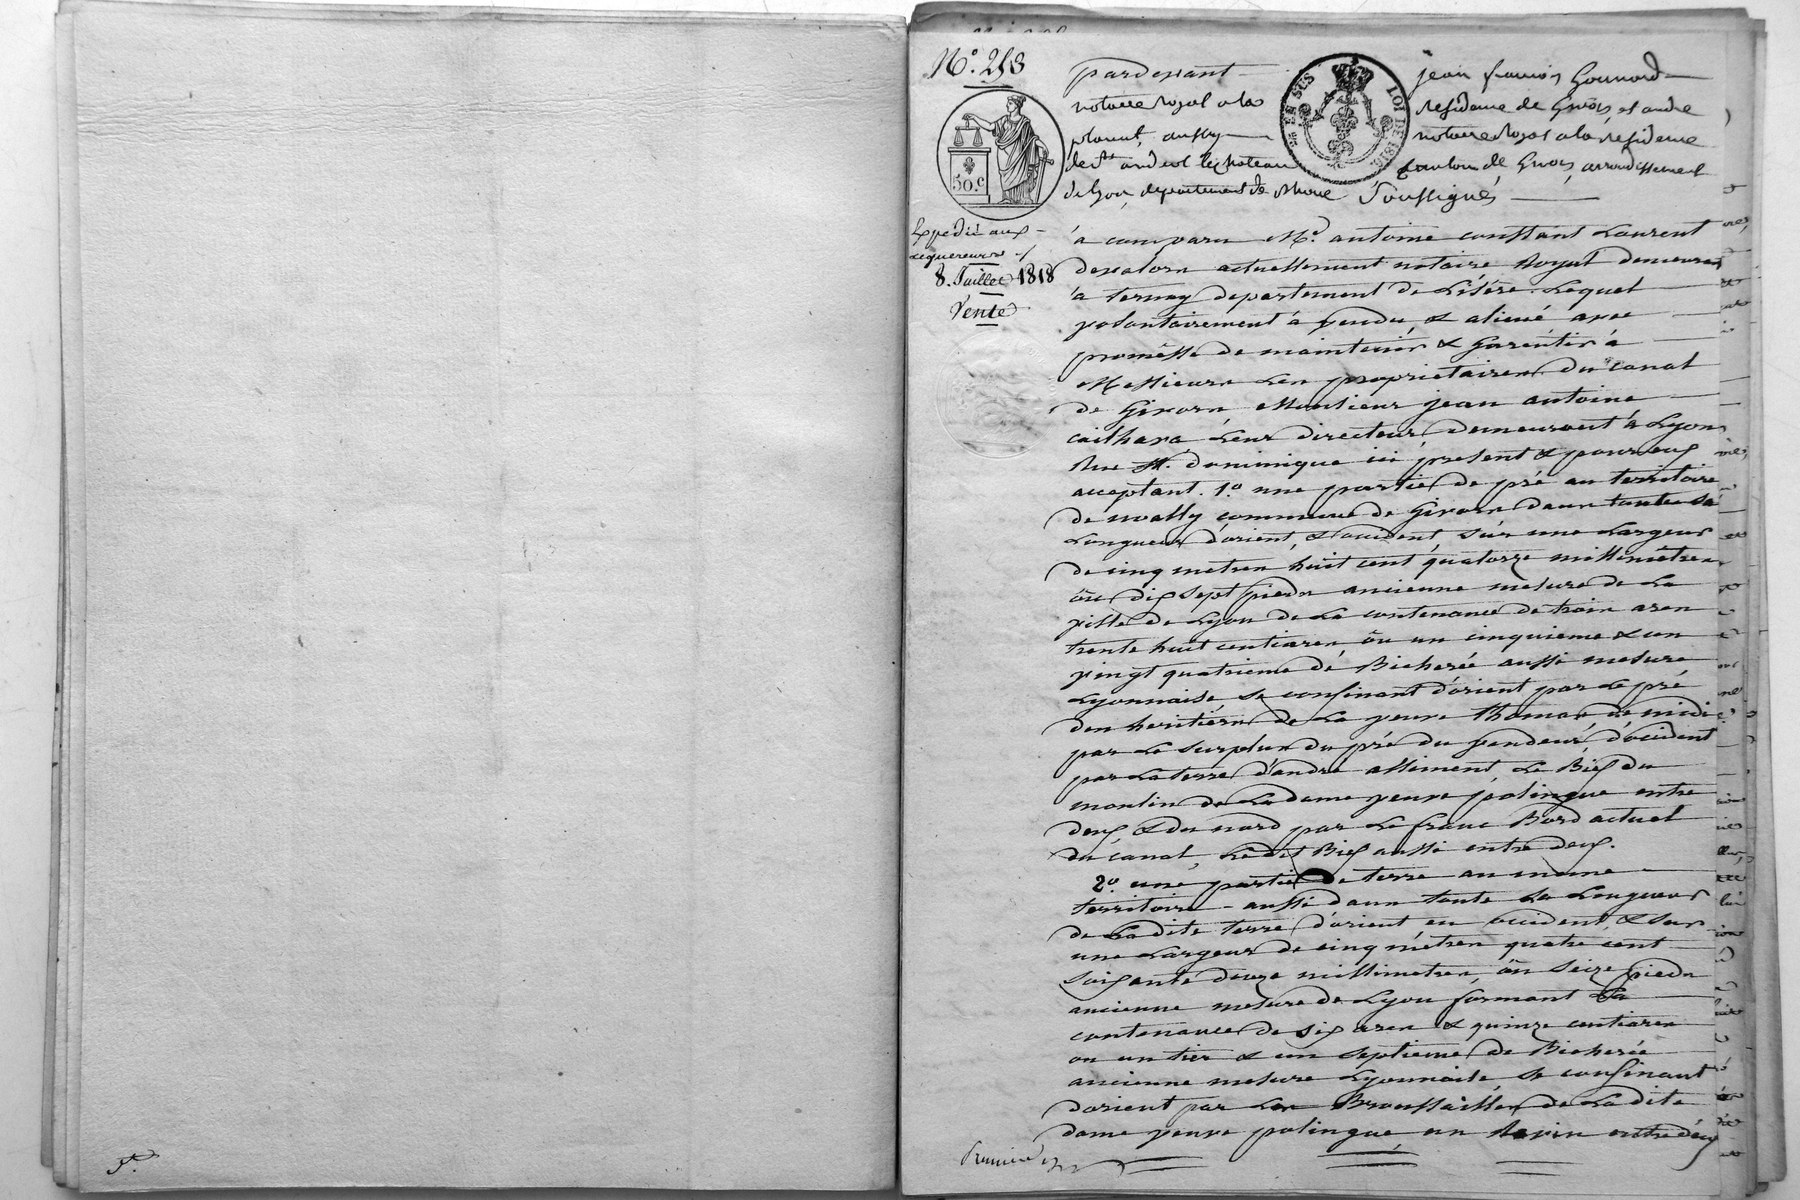 N.° 253
pardevant jean françois Gounard
notaire royal a la résidence de Givors, et andre
notaire royal a la résidence
de St andeol le chateau canton de Givors, arrondissement
de Lyon, département du Rhone Soussignés
50.c
EN SUS LOI DE 1816
Expédié aux
acquereurs
8. Juillet 1818
Vente
à comparu M.e antoine constant Laurent
actuellement notaire Royal demeurant
à ternay departement de L'isére. Lequel
volontairement à vendu & aliené avec
promésse de maintenir & Garentir à
Messieurs Les proprietaires du canal
de Givors Monsieur jean antoine
cailhava Leur directeur, demeurant à Lyon
Rue St. dominique ici present & pour eux
acceptant. 1.° une partie de pré au territoire
de commune de Givors dans toute sa
Longueur d'orient, & occident sur une Largeur
de cinq metres huit cent quatorze millimètres
ôu dix sept pieds ancienne mesure de La
ville de Lyon de La contenance de trois ares
trente huit centiares ôu un cinquieme & un
vingt quatrieme de Bicherée aussi mesure
Lyonnaise, se confinant d'orient par Le pré
des heritiérs de La veuve thomas de midi
par Le surplus du pré du vendeur, d'occident
par La terre d'andre alliment, Le Bief du
moulin de La dame veuve palingue entre
deux & du nord par Le franc Bord actuel
du canal, Le dit Bief aussi entre deux.
2.° une partie de terre au même
territoire - aussi dans toute sa Longueur
de La dite terre d'orient en occident, & sur
une Largeur de cinq métres quatre cent
soixante douze millimetres, ôu seize pieds
ancienne mesure de Lyon formant La
contenance de six ares & quinze centiares
ou un tier & un septieme de Bicherée
ancienne mesure Lyonnaise se confinant
d'orient par Les Broussailles de La dite
dame veuve palingue un Ravin entre deux